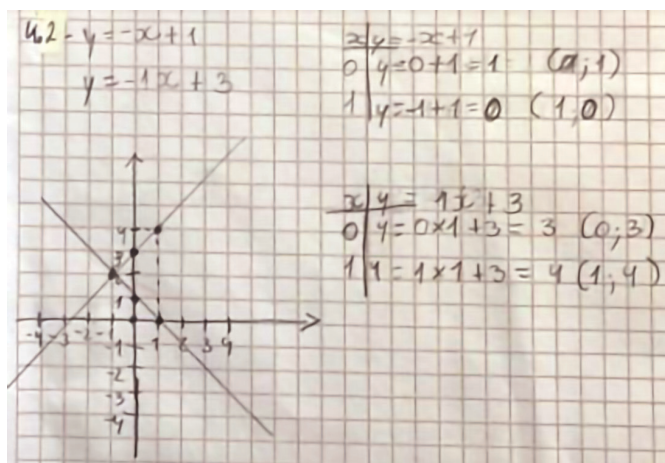 4.2 - y = -x + 1
y = -1x + 3
x | y = -x + 1
0 | y = 0 + 1 = 1 (0;1)
1 | y = -1 + 1 = 0 (1;0)
x | y = 1x + 3
0 | y = 0×1 + 3 = 3 (0;3)
1 | y = 1×1 + 3 = 4 (1;4)
4
3
1
-4 -3 -2 -1 1 2 3 4
-1
-2
-3
-4